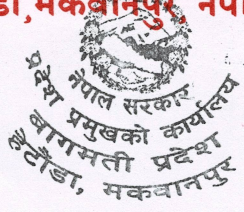 डा,मकवानपुर, नेपा
नेपाल सरकार
प्रदेश प्रमुखको कार्यालय
बागमती प्रदेश
हेटौंडा, मकवानपुर